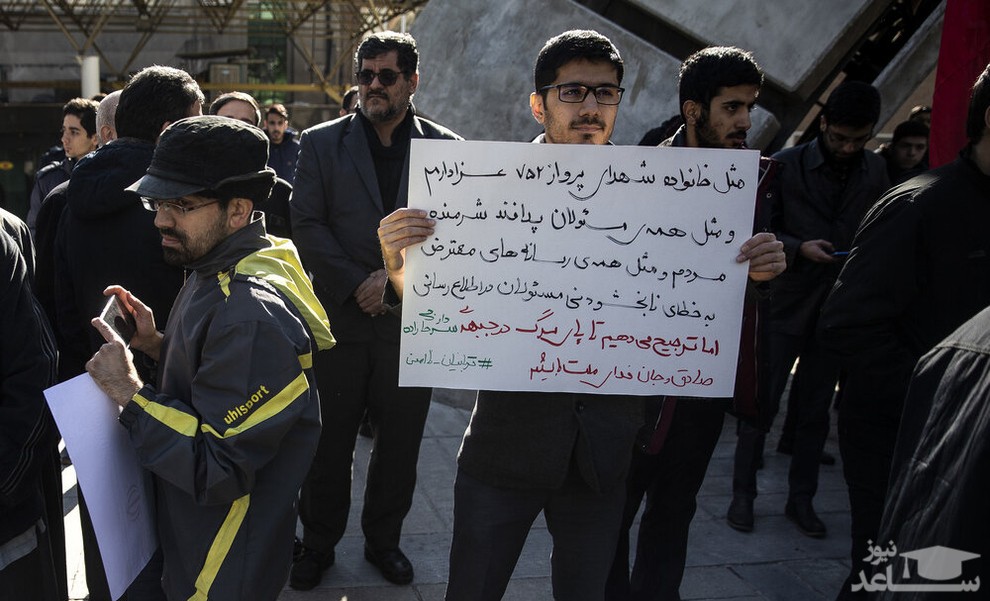 مثل خانواده شهدای پرواز ۷۵۲ عزاداریم
و مثل همه ی مسئولان پدافند شرمنده
مردم و مثل همه ی رسانه های معترض
به خطای نابخشودنی مسئولان در اطلاع رسانی
اما ترجیح می دهیم تا پای مرگ در جبهه ی
صادق و جان فدای ملت
uhlsport
نیوز
ساعد